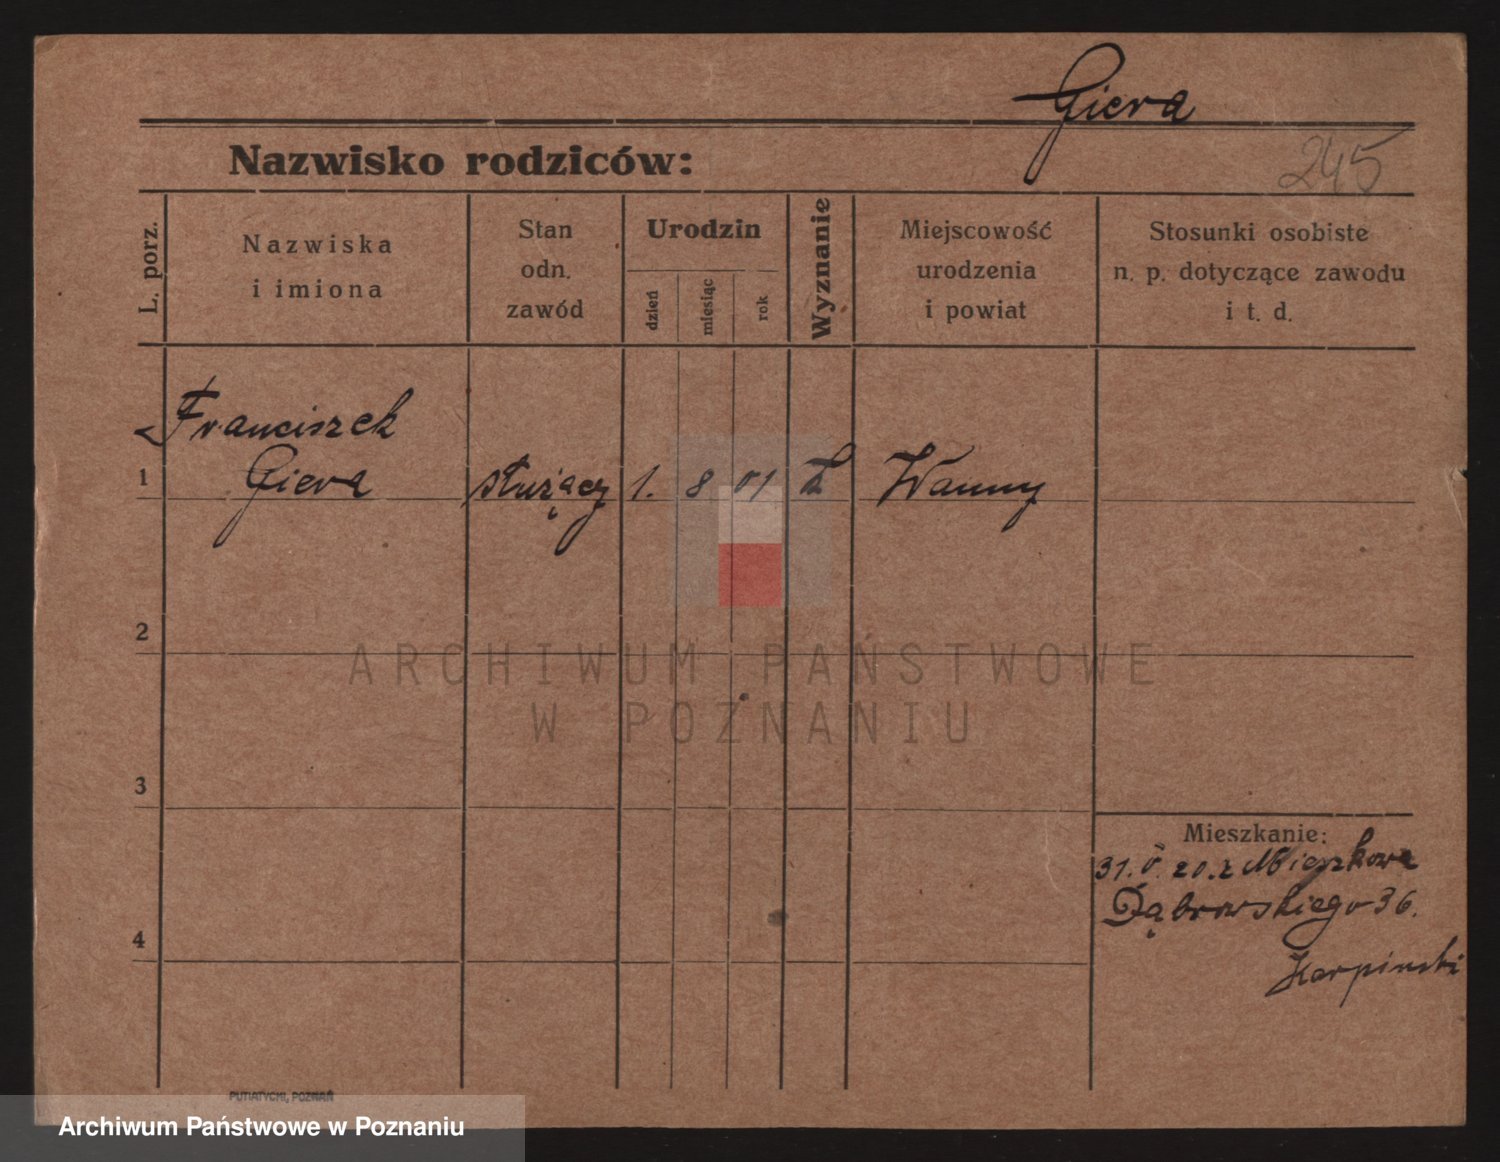 Giera
245
Nazwisko rodziców:
L. porz.
Nazwiska
i imiona
Stan
odn.
zawód
Urodzin
dzień
miesiąc
rok
Wyznanie
Miejscowość
urodzenia
i powiat
Stosunki osobiste
n. p. dotyczące zawodu
i t. d.
Franciszek
1 Giera służący 1. 8 01 Wanny
2
3
4
Mieszkanie:
31. V. 20. z Mieszkowa
Dąbrowskiego 36.
Karpinski
ARCHIWUM PAŃSTWOWE
W POZNANIU
PUTIATYCKI, POZNAŃ
Archiwum Państwowe w Poznaniu